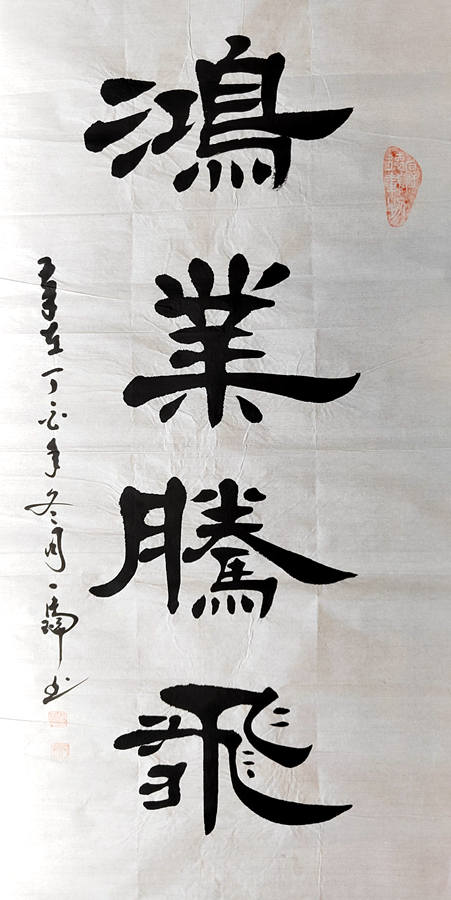 鴻業騰飛
歲在丁亥年冬月
書